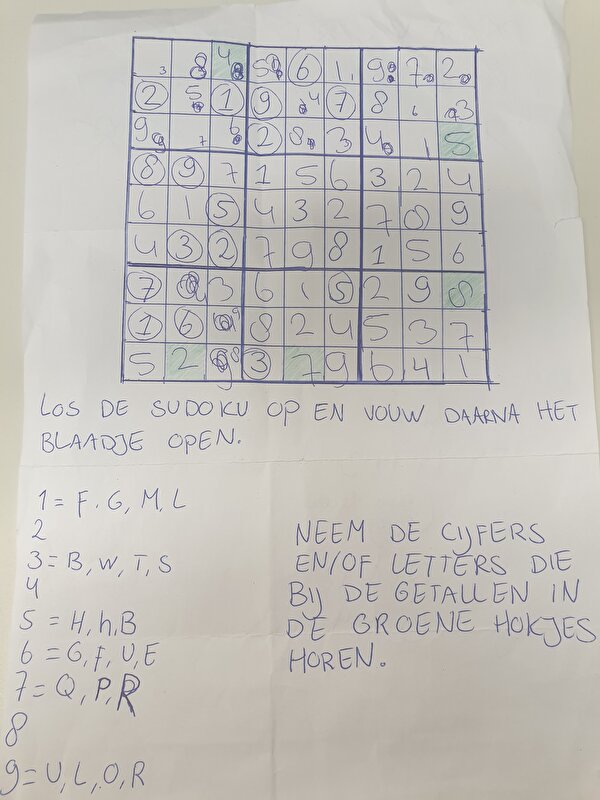 3 8 4 5 6 1 9 7 2
2 5 1 9 4 7 8 6 3
9 7 6 2 8 3 4 1 5
8 9 7 1 5 6 3 2 4
6 1 5 4 3 2 7 8 9
4 3 2 7 9 8 1 5 6
7 4 3 6 1 5 2 9 8
1 6 9 8 2 4 5 3 7
5 2 8 3 7 9 6 4 1
LOS DE SUDOKU OP EN VOUW DAARNA HET
BLAADJE OPEN.
1 = F, G, M, L
2
3 = B, W, T, S
4
5 = H, h, B
6 = G, F, U, E
7 = Q, P, R
8
9 = U, L, O, R
NEEM DE CIJFERS
EN/OF LETTERS DIE
BIJ DE GETALLEN IN
DE GROENE HOKJES
HOREN.